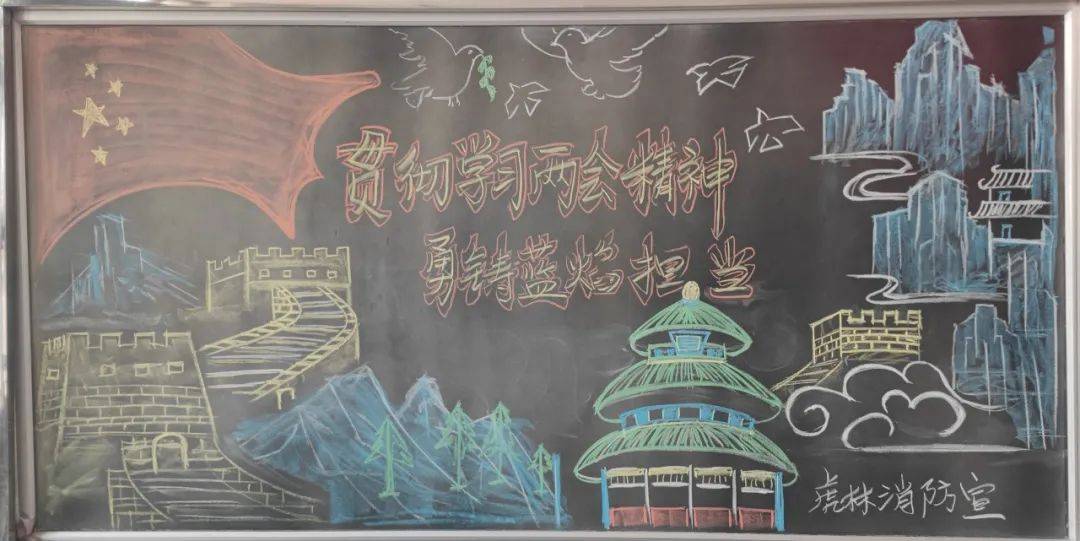 贯彻学习两会精神
勇铸蓝焰担当
虎林消防宣